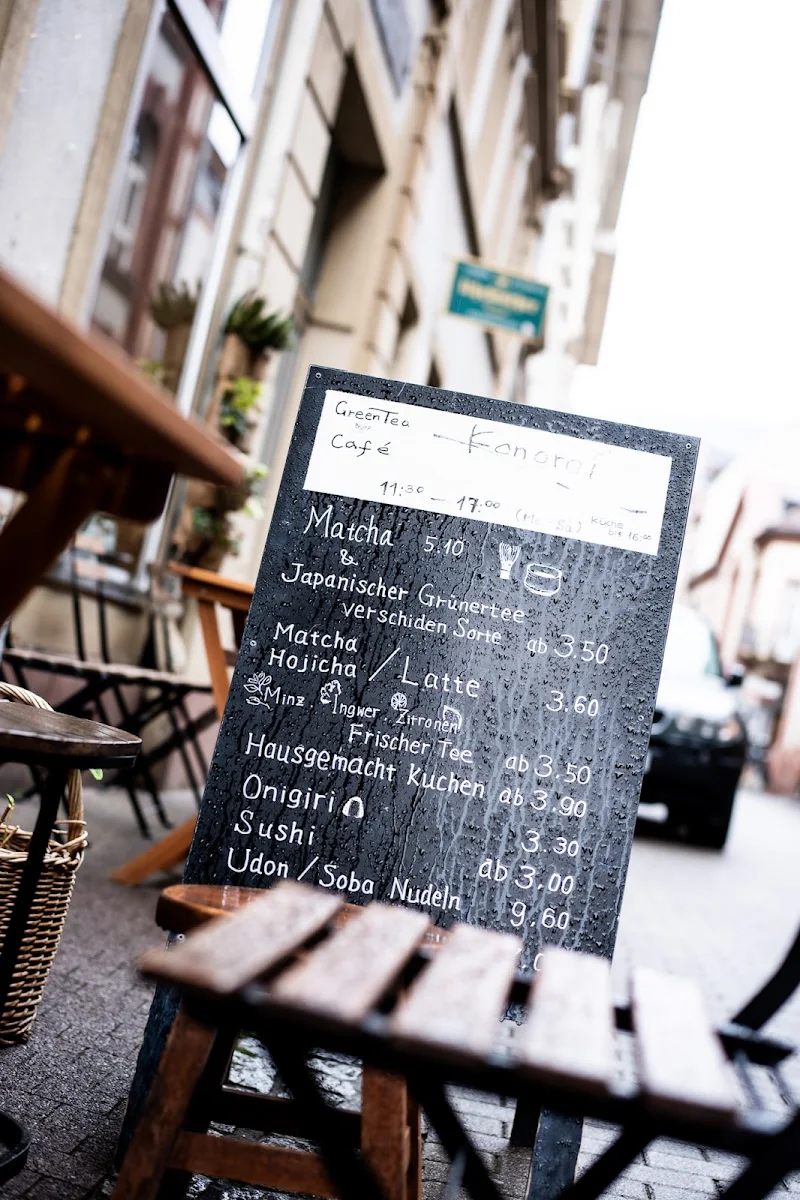 GreenTea
Café
11:30 – 17:00 (Mo-Sa) Küche bis 16:00
Matcha 5.10
&
Japanischer Grünertee
verschiden Sorte ab 3.50
Matcha
Hojicha / Latte 3.60
Minz . Ingwer . Zitronen
Frischer Tee ab 3.50
Hausgemacht Kuchen ab 3.90
Onigiri 3.30
Sushi ab 3.00
Udon / Soba Nudeln 9.60